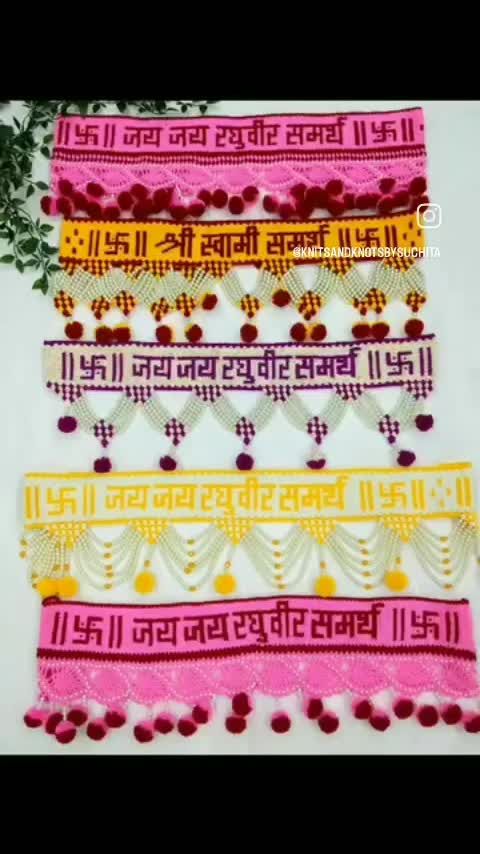 ॥ 卐 ॥ जय जय रघुवीर समर्थ ॥ 卐 ॥
॥ 卐 ॥ श्री स्वामी समर्थ ॥ 卐 ॥
@KNITSANDKNOTSBYSUCHITA
॥ 卐 ॥ जय जय रघुवीर समर्थ ॥ 卐 ॥
॥ 卐 ॥ जय जय रघुवीर समर्थ ॥ 卐 ॥
॥ 卐 ॥ जय जय रघुवीर समर्थ ॥ 卐 ॥